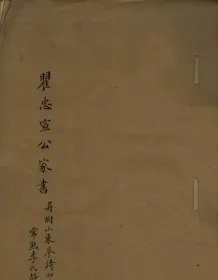 瞿忠宣公家書
再附小東皋詩
常熟李氏